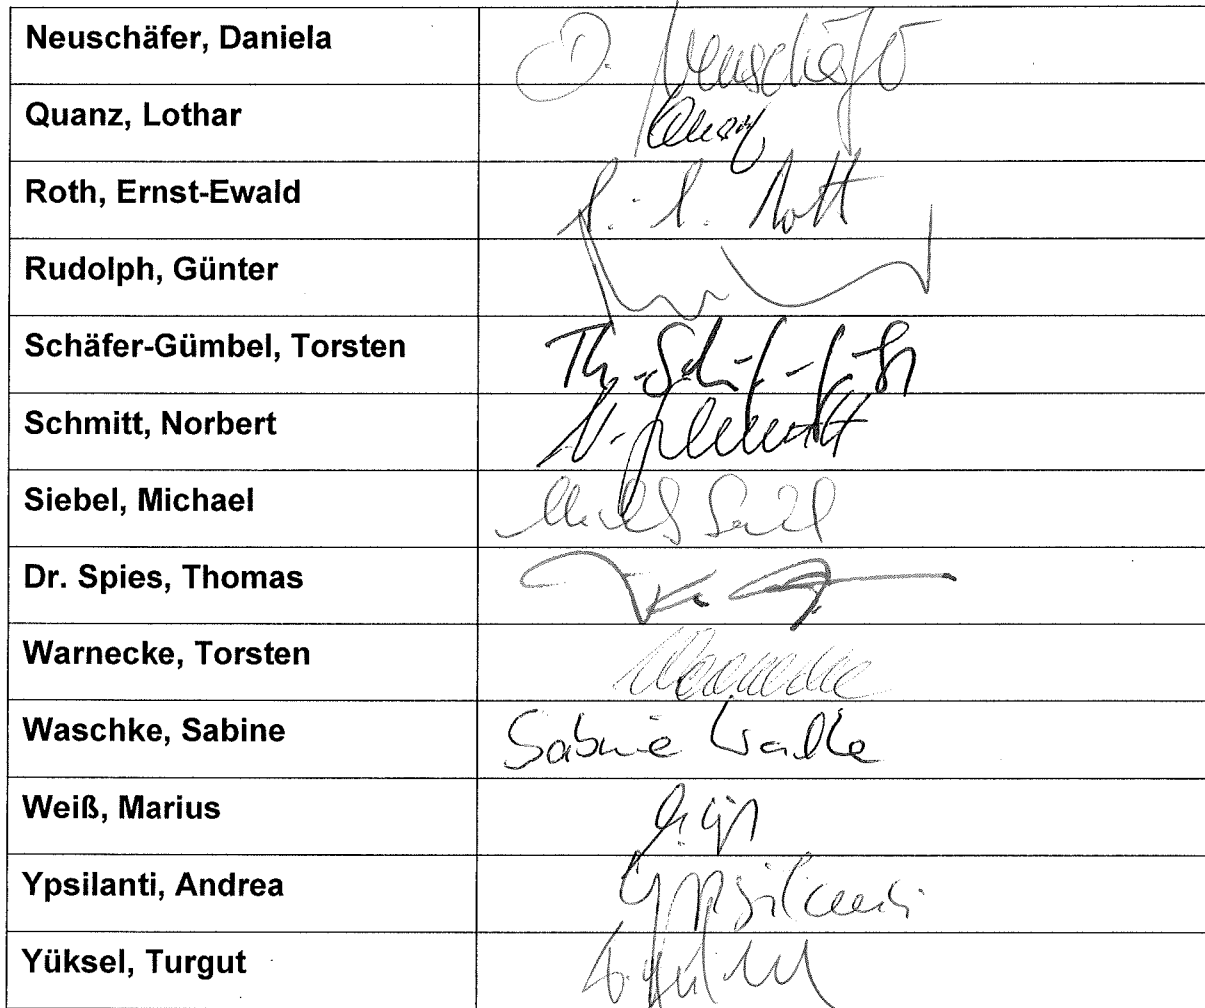 Neuschäfer, Daniela D. Neuschäfer
Quanz, Lothar Quanz
Roth, Ernst-Ewald E. E. Roth
Rudolph, Günter
Schäfer-Gümbel, Torsten
Schmitt, Norbert N. Schmitt
Siebel, Michael
Dr. Spies, Thomas
Warnecke, Torsten Warnecke
Waschke, Sabine Sabine Waschke
Weiß, Marius
Ypsilanti, Andrea Ypsilanti
Yüksel, Turgut